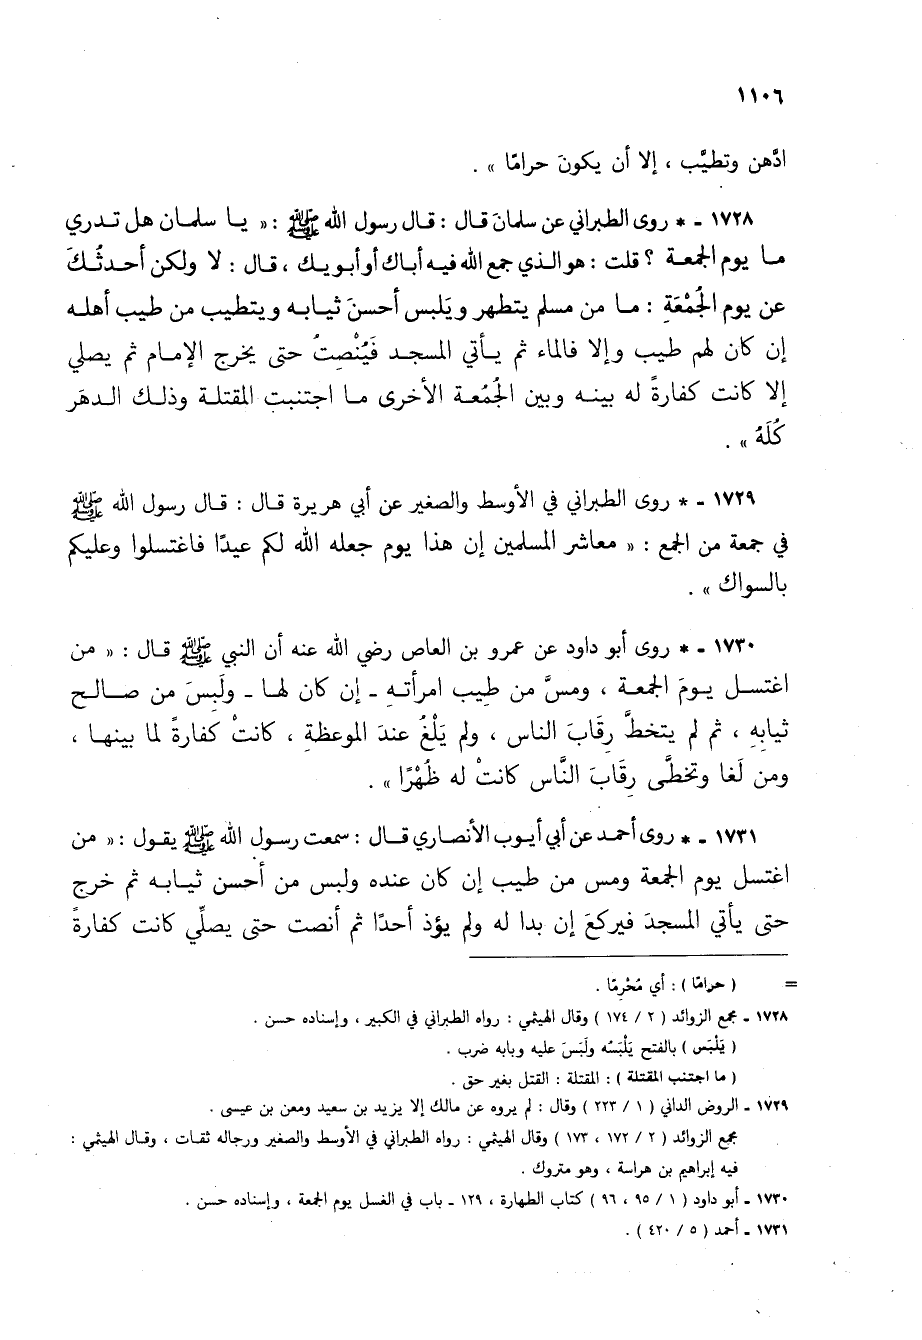 ١١٠٦
ادَّهن وتطيَّب ، إلا أن يكونَ حرامًا » .
١٧٢٨ - * روى الطبراني عن سلمانَ قال : قال رسول الله ﷺ : « يـا سلمان هل تـدري
مـا يوم الجمعـة ؟ قلت : هو الـذي جمع الله فيـه أبـاك أو أبـويـك ، قـال : لا ولكن أحـدثُـكَ
عن يوم الجُمْعَةِ : مـا من مسلم يتطهر ويَلبس أحسنَ ثيـابـه ويتطيب من طيب أهلـه
إن كان لهم طيب وإلا فالماء ثم يـأتي المسجـد فَيُنْصِتُ حتى يخرج الإمـام ثم يصلي
إلا كانت كفارةً له بينـه وبين الجُمُعـة الأخرى مـا اجتنبت المقتلـة وذلـك الـدهرَ
كُلَهُ » .
١٧٢٩ - * روى الطبراني في الأوسط والصغير عن أبي هريرة قـال : قـال رسول الله ﷺ
في جمعة من الجمع : « معاشر المسلمين إن هذا يوم جعله الله لكم عيدًا فاغتسلوا وعليكم
بالسواك » .
١٧٣٠ - * روى أبو داود عن عمرو بن العاص رضي الله عنه أن النبي ﷺ قـال : « من
اغتسـل يـومَ الجمعـة ، ومسَّ من طيب امرأتـهِ - إن كان لهـا - ولَبِسَ من صـالـح
ثيابِهِ ، ثم لم يتخطَّ رِقَابَ الناس ، ولم يَلْغُ عندَ الموعظة ، كانتْ كفارةً لما بينهـا ،
ومن لَغا وتخطَّى رِقَابَ النَّاس كانتْ له ظُهْرًا » .
١٧٣١ - * روى أحمـد عن أبي أيـوب الأنصـاري قـال : سمعت رسـول الله ﷺ يقـول : « من
اغتسل يوم الجمعة ومس من طيب إن كان عنده ولبس من أحسن ثيـابـه ثم خرج
حتى يأتي المسجدَ فيركعَ إن بدا له ولم يؤذ أحدًا ثم أنصت حتى يصلِّي كانت كفارةً
= ( حرامًا ) : أي مُحْرِمًا .
١٧٢٨ - مجمع الزوائد ( ٢ / ١٧٤ ) وقال الهيثمي : رواه الطبراني في الكبير ، وإسناده حسن .
( يَلْبَس ) بالفتح يَلْبَسُه ولَبَسَ عليه وبابه ضرب .
( ما اجتنب المقتلة ) : المقتلة : القتل بغير حق .
١٧٢٩ - الروض الداني ( ١ / ٢٢٣ ) وقال : لم يروه عن مالك إلا يزيد بن سعيد ومعن بن عيسى .
مجمع الزوائد ( ٢ / ١٧٢ ، ١٧٣ ) وقال الهيثمي : رواه الطبراني في الأوسط والصغير ورجاله ثقـات ، وقـال الهيثمي :
فيه إبراهيم بن هراسة ، وهو متروك .
١٧٣٠ - أبو داود ( ١ / ٩٥ ، ٩٦ ) كتاب الطهارة ، ١٢٩ - باب في الغسل يوم الجمعة ، وإسناده حسن .
١٧٣١ - أحمد ( ٥ / ٤٢٠ ) .